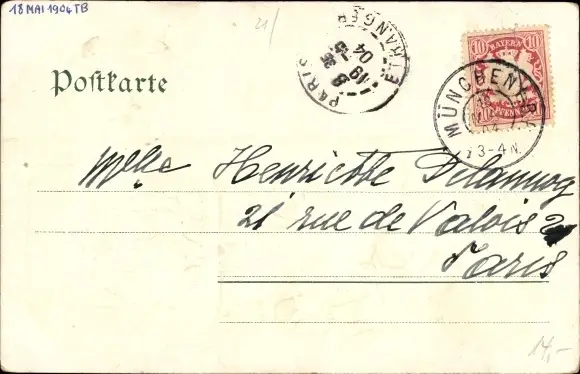 18 MAI 1904 TB
21/
PARIS ETRANGER
19 -5
04
10 BAYERN 10
PFENNIG
MÜNCHEN
3-4 N.
Postkarte
Mlle Henriette Delannoy
21 rue de Valois
Paris
14,-